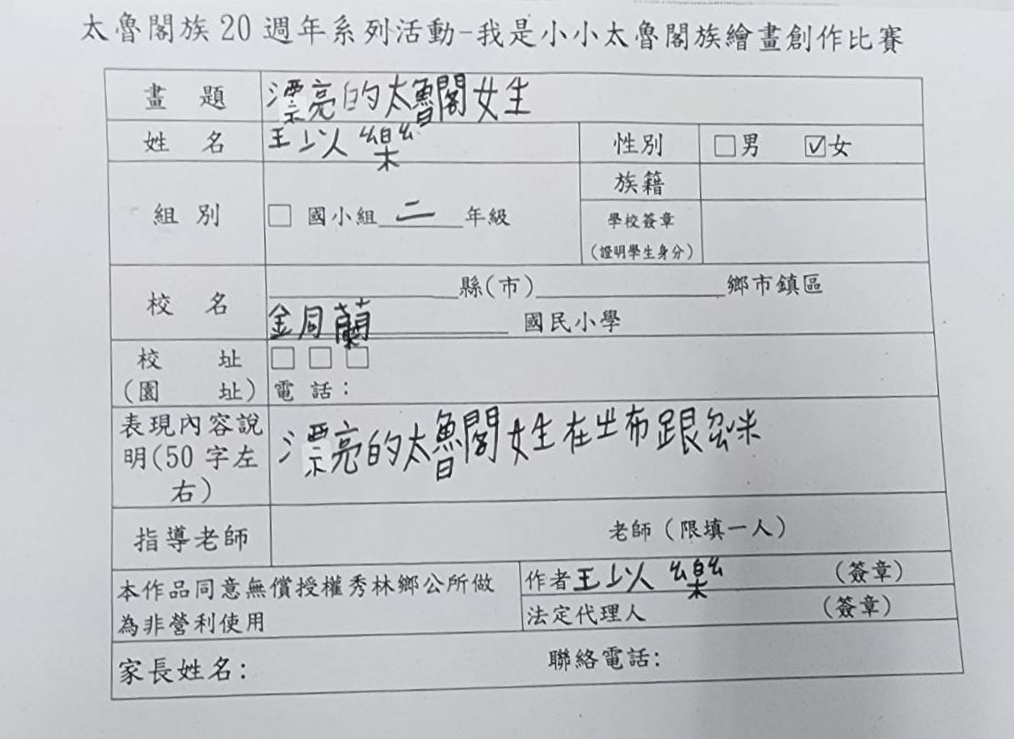 太魯閣族 20 週年系列活動-我是小小太魯閣族繪畫創作比賽
畫 題 漂亮的太魯閣女生
姓 名 王以樂 性別 □男 ☑女
族籍
組 別 □ 國小組 二 年級 學校簽章
(證明學生身分)
校 名 縣(市) 鄉市鎮區
金同蘭 國民小學
校 址 □ □ □
(園 址) 電 話:
表現內容說明(50 字左右) 漂亮的太魯閣女生在布跟
指導老師 老師(限填一人)
本作品同意無償授權秀林鄉公所做 作者 王以樂 (簽章)
為非營利使用 法定代理人 (簽章)
家長姓名: 聯絡電話: